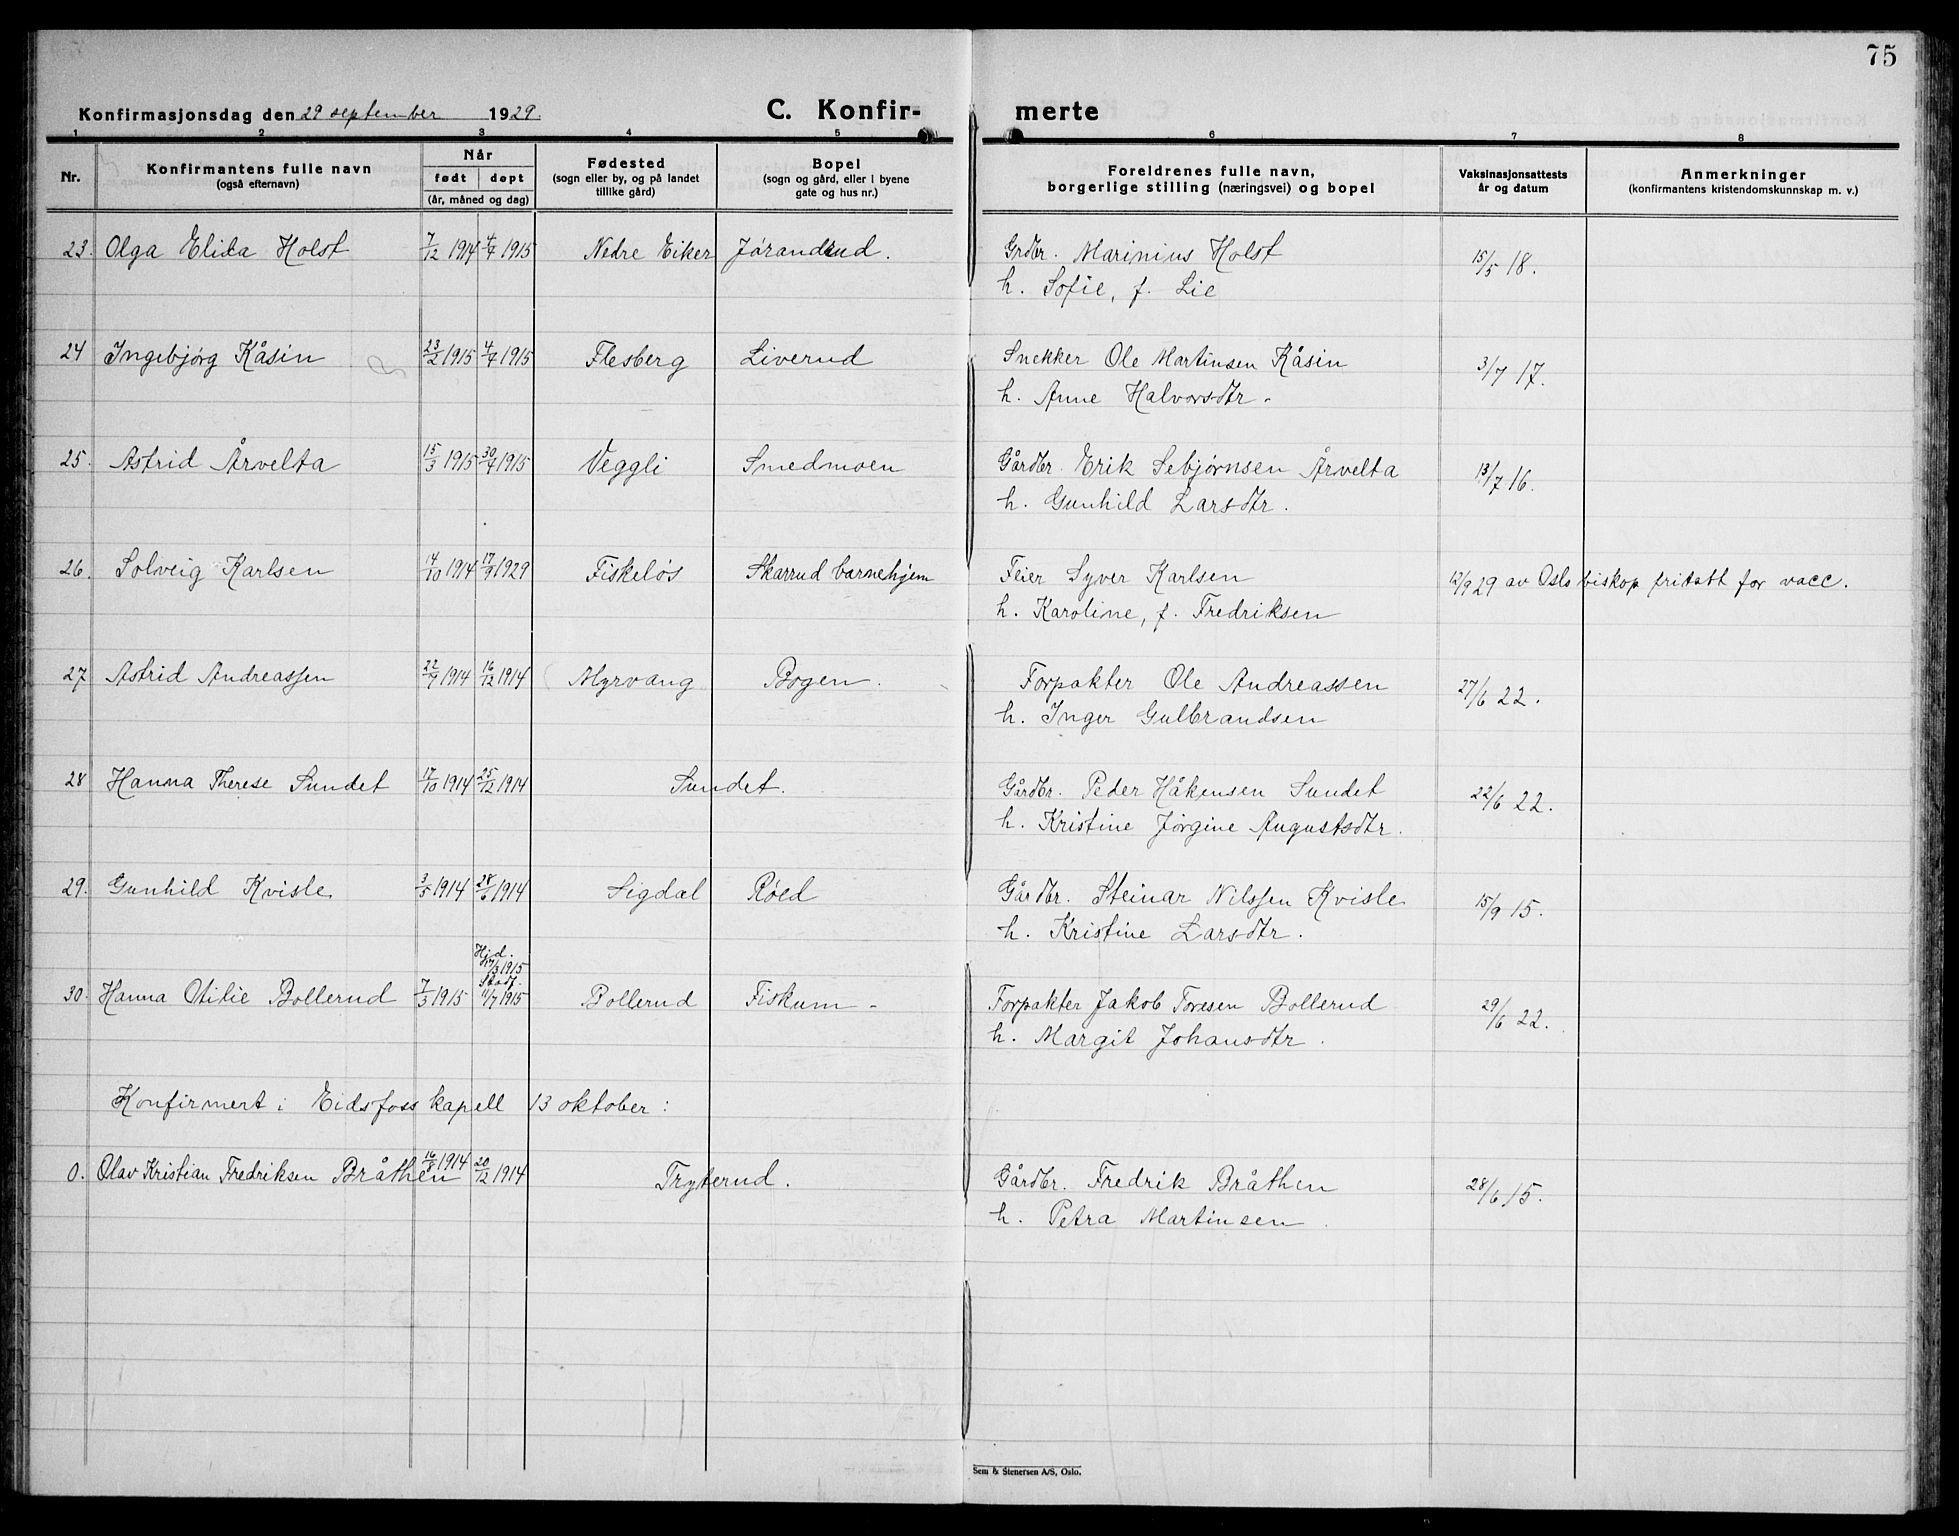 75
Konfirmasjonsdag den 29 september 1929. C. Konfir- merte
1 2 3 4 5 6 7 8
Nr. Konfirmantens fulle navn (også efternavn) Når født døpt (år, måned og dag) Fødested (sogn eller by, og på landet tillike gård) Bopel (sogn og gård, eller i byene gate og hus nr.) Foreldrenes fulle navn, borgerlige stilling (næringsvei) og bopel Vaksinasjonsattests år og datum Anmerkninger (konfirmantens kristendomskunnskap m. v.)
23. Olga Elida Holst 7/12 1914 4/4 1915 Nedre Eiker Jørandrud. Grdbr. Marinius Holst 15/5 18.
h. Sofie, f. Lie
24 Ingebjørg Kåsin 23/2 1915 4/4 1915 Flesberg Liverud Snekker Ole Martinsen Kåsin 3/7 17.
h. Anne Halvorsdtr.
25. Astrid Årvelta 15/3 1915 30/4 1915 Veggli Smedmoen Gårdbr. Erik Sebjørnsen Årvelta 13/7 16.
h. Gunhild Larsdtr.
26. Solveig Karlsen 14/10 1914 17/9 1929 Fiskeløs Skarrud barnehjem Feier Syver Karlsen 12/9 29 av Oslo biskop fritatt for vacc.
h. Karoline, f. Fredriksen
27 Astrid Andreassen 22/9 1914 16/12 1914 Myrvang Bogen. Forpakter Ole Andreassen 27/6 22.
h. Inger Gulbrandsen
28 Hanna Therese Sundet 17/10 1914 25/12 1914 Sundet. Gårdbr. Peder Håkensen Sundet 22/6 22.
h. Kristine Jørgine Augustsdtr.
29. Gunhild Kvisle 3/5 1914 28/6 1914 Sigdal Røed Gårdbr. Steinar Nilssen Kvisle 15/9 15.
h. Kristine Larsdtr.
Hjd. 17/3 1915
Stadf.
30. Hanna Otilie Bollerud 7/3 1915 11/7 1915 Bollerud Fiskum Forpakter Jakob Toresen Bollerud 29/6 22.
h. Margit Johansdtr.
Konfirmert i Eidsfoss kapell 13 oktober:
0. Olav Kristian Fredriksen Bråthen 16/8 1914 20/12 1914 Tryterud. Gårdbr. Fredrik Bråthen 28/6 15.
h. Petra Martinsen
Sem & Stenersen A/S, Oslo.